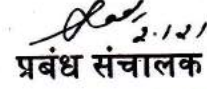 2.1.21
प्रबंध संचालक